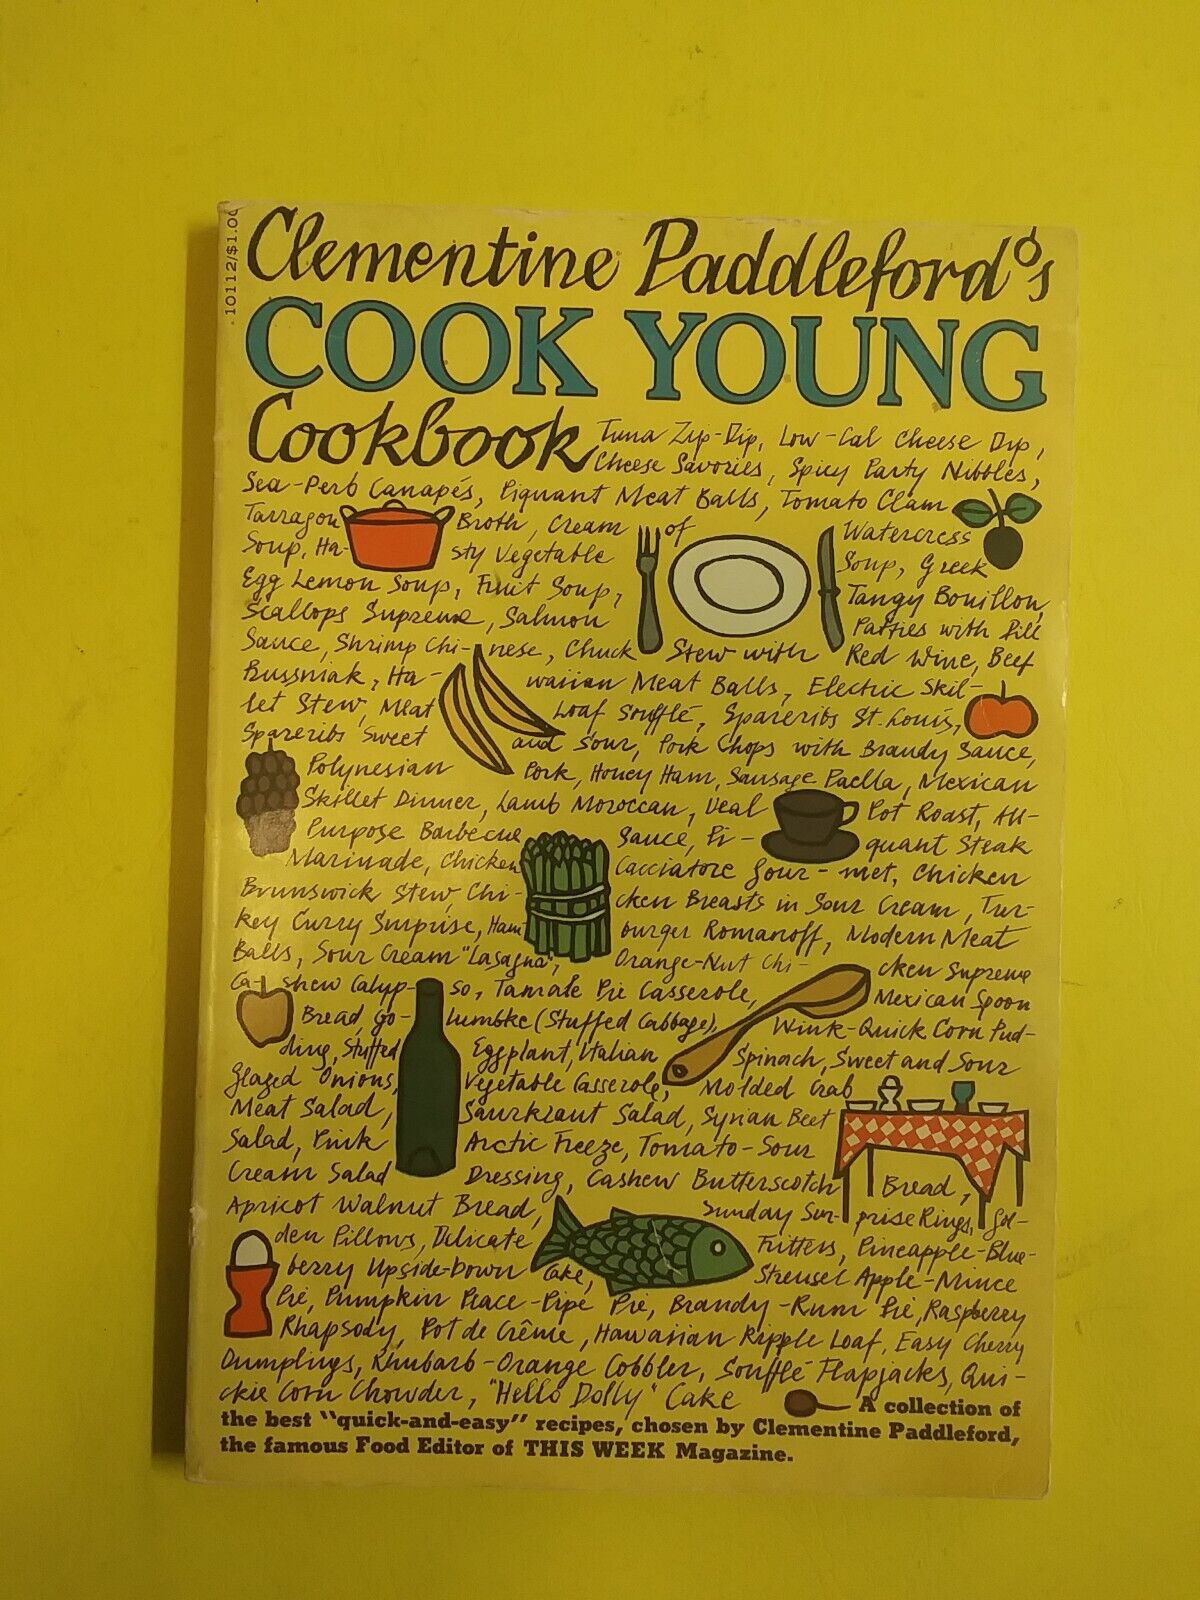 10112/$1.00
Clementine Paddleford's
COOK YOUNG
Cookbook Tuna Zip-Dip, Low-Cal Cheese Dip,
Cheese Savories, Spicy Party Nibbles,
Sea-Perb Canapés, Piquant Meat Balls, Tomato Clam
Tarragon Broth, Cream of Watercress
Soup, Ha- sty Vegetable Soup, Greek
Egg Lemon Soup, Fruit Soup, Tangy Bouillon,
Scallops Supreme, Salmon Patties with Dill
Sauce, Shrimp Chi- nese, Chuck Stew with Red Wine, Beef
Bussniak, Ha- waiian Meat Balls, Electric Skil-
let Stew, Meat Loaf Soufflé, Spareribs St. Louis,
Spareribs Sweet and Sour, Pork Chops with Brandy Sauce,
Polynesian Pork, Honey Ham, Sausage Paella, Mexican
Skillet Dinner, Lamb Moroccan, Veal Pot Roast, All-
Purpose Barbecue Sauce, Pi- quant Steak
Marinade, Chicken Cacciatore Gour- met, Chicken
Brunswick Stew, Chi- cken Breasts in Sour Cream, Tur-
key Curry Surprise, Ham burger Romanoff, Modern Meat
Balls, Sour Cream "Lasagna", Orange-Nut Chi- cken Supreme
Ca- shew Calyp- so, Tamale Pie Casserole, Mexican Spoon
Bread, Go- lumbke (Stuffed Cabbage), Wink-Quick Corn Pud-
ding, Stuffed Eggplant, Italian Spinach, Sweet and Sour
Glazed Onions, Vegetable Casserole, Molded Crab
Meat Salad, Saurkraut Salad, Syrian Beet
Salad, Pink Arctic Freeze, Tomato-Sour
Cream Salad Dressing, Cashew Butterscotch Bread,
Apricot Walnut Bread, Sunday Sur- prise Rings, Gol-
den Pillows, Delicate Fritters, Pineapple-Blue-
berry Upside-Down Cake, Streusel Apple-Mince
Pie, Pumpkin Peace-Pipe Pie, Brandy-Rum Pie, Raspberry
Rhapsody, Pot de Crême, Hawaiian Ripple Loaf, Easy Cherry
Dumplings, Rhubarb-Orange Cobbler, Soufflé Flapjacks, Qui-
ckie Corn Chowder, "Hello Dolly" Cake A collection of
the best "quick-and-easy" recipes, chosen by Clementine Paddleford,
the famous Food Editor of THIS WEEK Magazine.